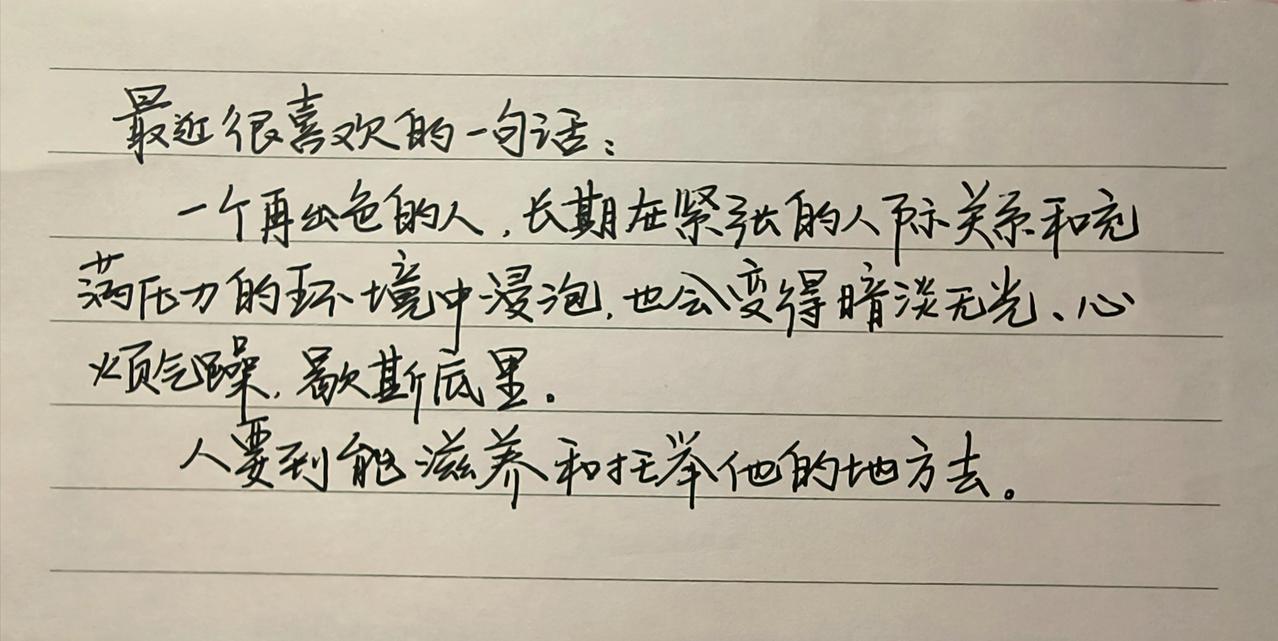 最近很喜欢的一句话：
一个再出色的人，长期在紧张的人际关系和充
满压力的环境中浸泡，也会变得暗淡无光、心
烦气躁，歇斯底里。
人要到能滋养和托举他的地方去。